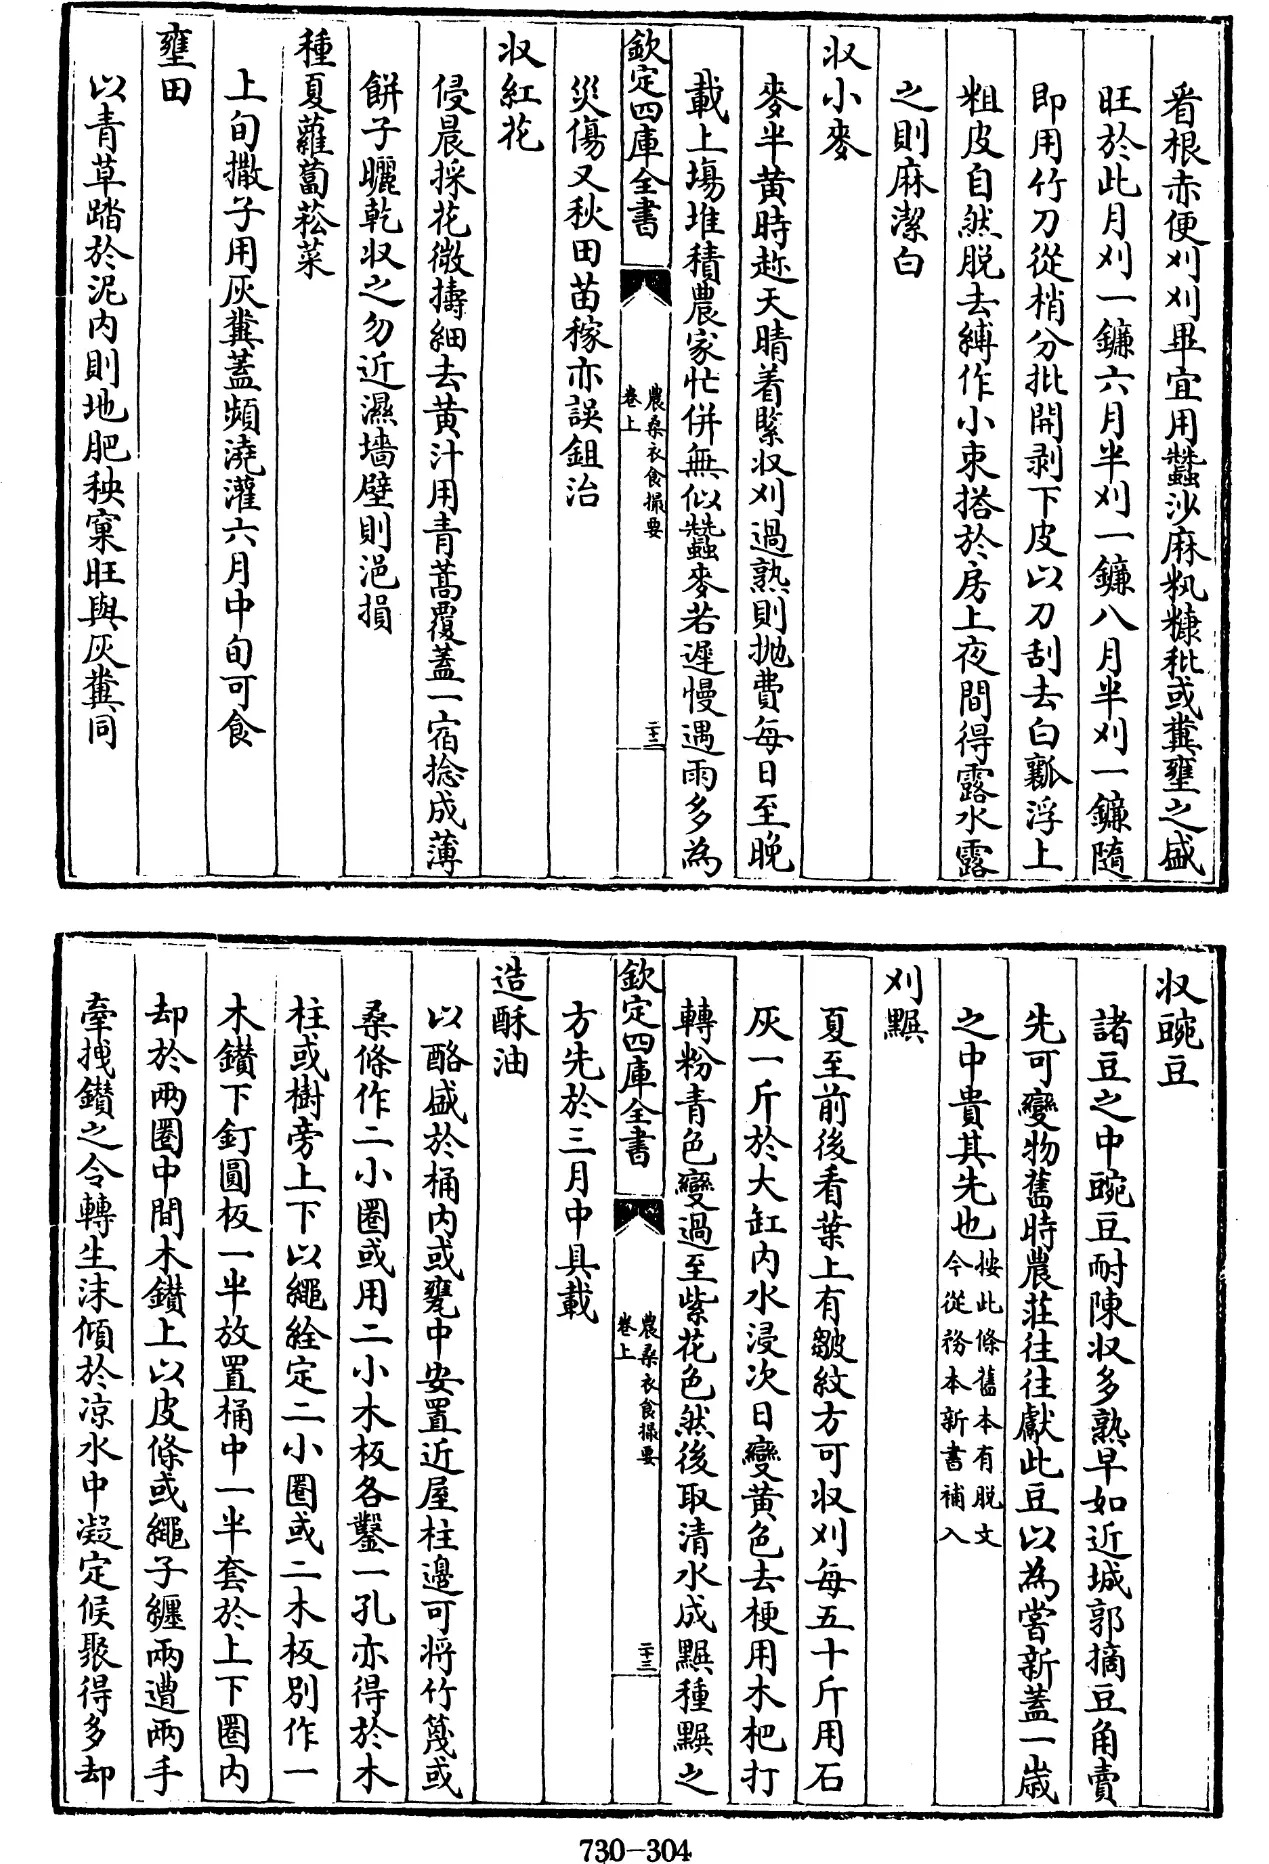 看根赤便刈刈畢宜用蠶沙麻籸糠秕或糞壅之盛
旺於此月刈一鐮六月半刈一鐮八月半刈一鐮隨
即用竹刀從梢分批開剥下皮以刀刮去白瓤浮上
粗皮自然脱去縛作小束搭於房上夜間得露水露
之則麻潔白
收小麥
麥半黄時趂天晴着緊收刈過熟則抛費每日至晚
載上塲堆積農家忙併無似蠶麥若遲慢遇雨多為
欽定四庫全書
農桑衣食撮要
卷上
二十二
災傷又秋田苗稼亦誤鉏治
收紅花
侵晨採花微擣細去黄汁用青蒿覆蓋一宿捻成薄
餅子曬乾收之勿近濕墻壁則浥損
種夏蘿蔔菘菜
上旬撒子用灰糞蓋頻澆灌六月中旬可食
壅田
以青草踏於泥内則地肥秧窠旺與灰糞同
收豌豆
諸豆之中豌豆耐陳收多熟早如近城郭摘豆角賣
先可變物舊時農莊往往獻此豆以為嘗新蓋一歳
之中貴其先也按此條舊本有脱文
今從務本新書補入
刈藍
夏至前後看葉上有皺紋方可收刈每五十斤用石
灰一斤於大缸内水浸次日變黄色去梗用木杷打
轉粉青色變過至紫花色然後取清水成靛種靛之
欽定四庫全書
農桑衣食撮要
卷上
二十三
方先於三月中具載
造酥油
以酪盛於桶内或甕中安置近屋柱邊可将竹篾或
桑條作二小圈或用二小木板各鑿一孔亦得於木
柱或樹旁上下以繩絟定二小圈或二木板别作一
木鑚下釘圓板一半放置桶中一半套於上下圈内
却於兩圈中間木鑚上以皮條或繩子纏兩遭兩手
牽拽鑚之令轉生沫傾於凉水中凝定候聚得多却
730-304